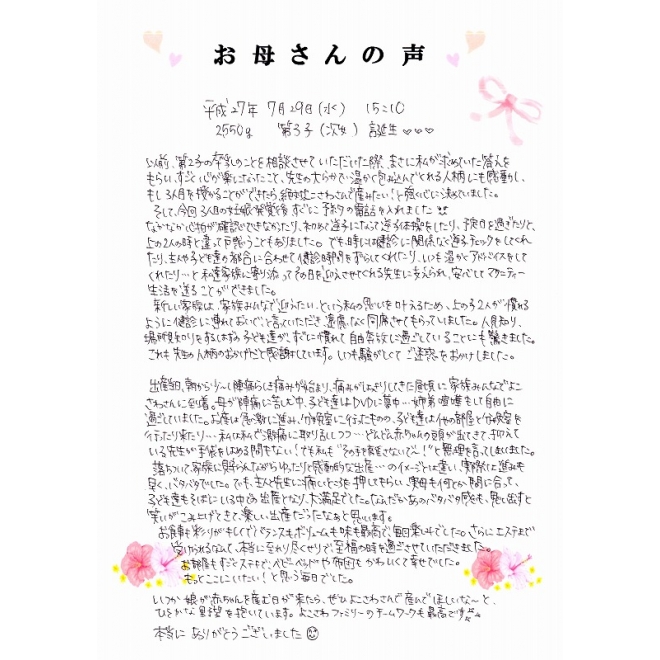 お母さんの声
平成27年 7月29日(水) 15:10
2550g 第3子(次女) 誕生♡♡♡
以前、第2子の卒乳のことを相談させていただいた際、まさに私が求めていた答えを
もらい、すごく心が楽になったこと、先生の大らかで温かく包み込んでくれる人柄にも感動し、
もし3人目を授かることができたら、絶対よこさわさんで産みたい!と強く心に決めていました。
そして、今回3人目の妊娠発覚後すぐに予約の電話を入れました
なかなか心拍が確認できなかったり、初めて逆子になって逆子体操をしたり、予定日を過ぎたりと、
上の2人の時と違って戸惑うこともありました。でも、時には健診に関係なく逆子チェックをしてくれ
たり、主人や子ども達の都合に合わせて健診時間をずらしてくれたり、いつも温かくアドバイスをして
くれたり…と私達家族に寄り添ってその日を迎えさせてくれる先生に支えられ、安心してマタニティー
生活を送ることができました。
新しい家族は、家族みんなで迎えたい、という私の思いを叶えるため、上の子2人が慣れる
ように健診に連れておいで、と言っていただき、遠慮なく同席させてもらっていました。人見知り、
場所見知りをするはずの子ども達が、すぐに慣れて自由奔放に過ごしていることにも驚きました。
これも先生の人柄のおかげだと感謝しています。いつも騒がしくてご迷惑をおかけしました。
出産当日、朝から少し陣痛らしき痛みが始まり、痛みがしっかりしてきた昼頃に家族みんなでよこ
さわさんに到着。母が陣痛に苦しむ中、子ども達はDVDに夢中…姉弟喧嘩もして自由に
過ごしていました。お産は急激に進み、分娩室に行ったものの、子ども達は他の部屋と分娩室を
行ったり来たり…私は私で激痛に取り乱しつつ…どんどん赤ちゃんの頭が出てきて、抑えて
いる先生が手袋をはめる間もない!でも私も"その手を離さないで〜!"と無理を言ってしまいました。
落ちついて家族に見守られながらゆったりと感動的な出産…のイメージとは違い、実際は進みも
早く、バタバタでした。でも、主人と先生に痛いところを押してもらい、実母も何とか間に合って、
子ども達もそばにいる中の出産となり、大満足でした。なんだかあのバタバタ感も、思い出すと
笑いがこみ上げてきて、楽しい出産だったなぁと思います。
お食事も彩りがキレイでバランスもボリュームも味も最高で、毎回楽しみでした。さらにエステまで
受けられるなんて、本当に至れり尽くせりで、至福の時を過ごさせていただきました。
お部屋もすごくステキで、ベビーベッドや布団もかわいくて幸せでした。
もっとここにいたい!と思う毎日でした。
いつか娘が赤ちゃんを産む日が来たら、ぜひよこさわさんで産んでほしいな〜と、
ひそかな野望を抱いています。よこさわファミリーのチームワークも最高です
本当にありがとうございました